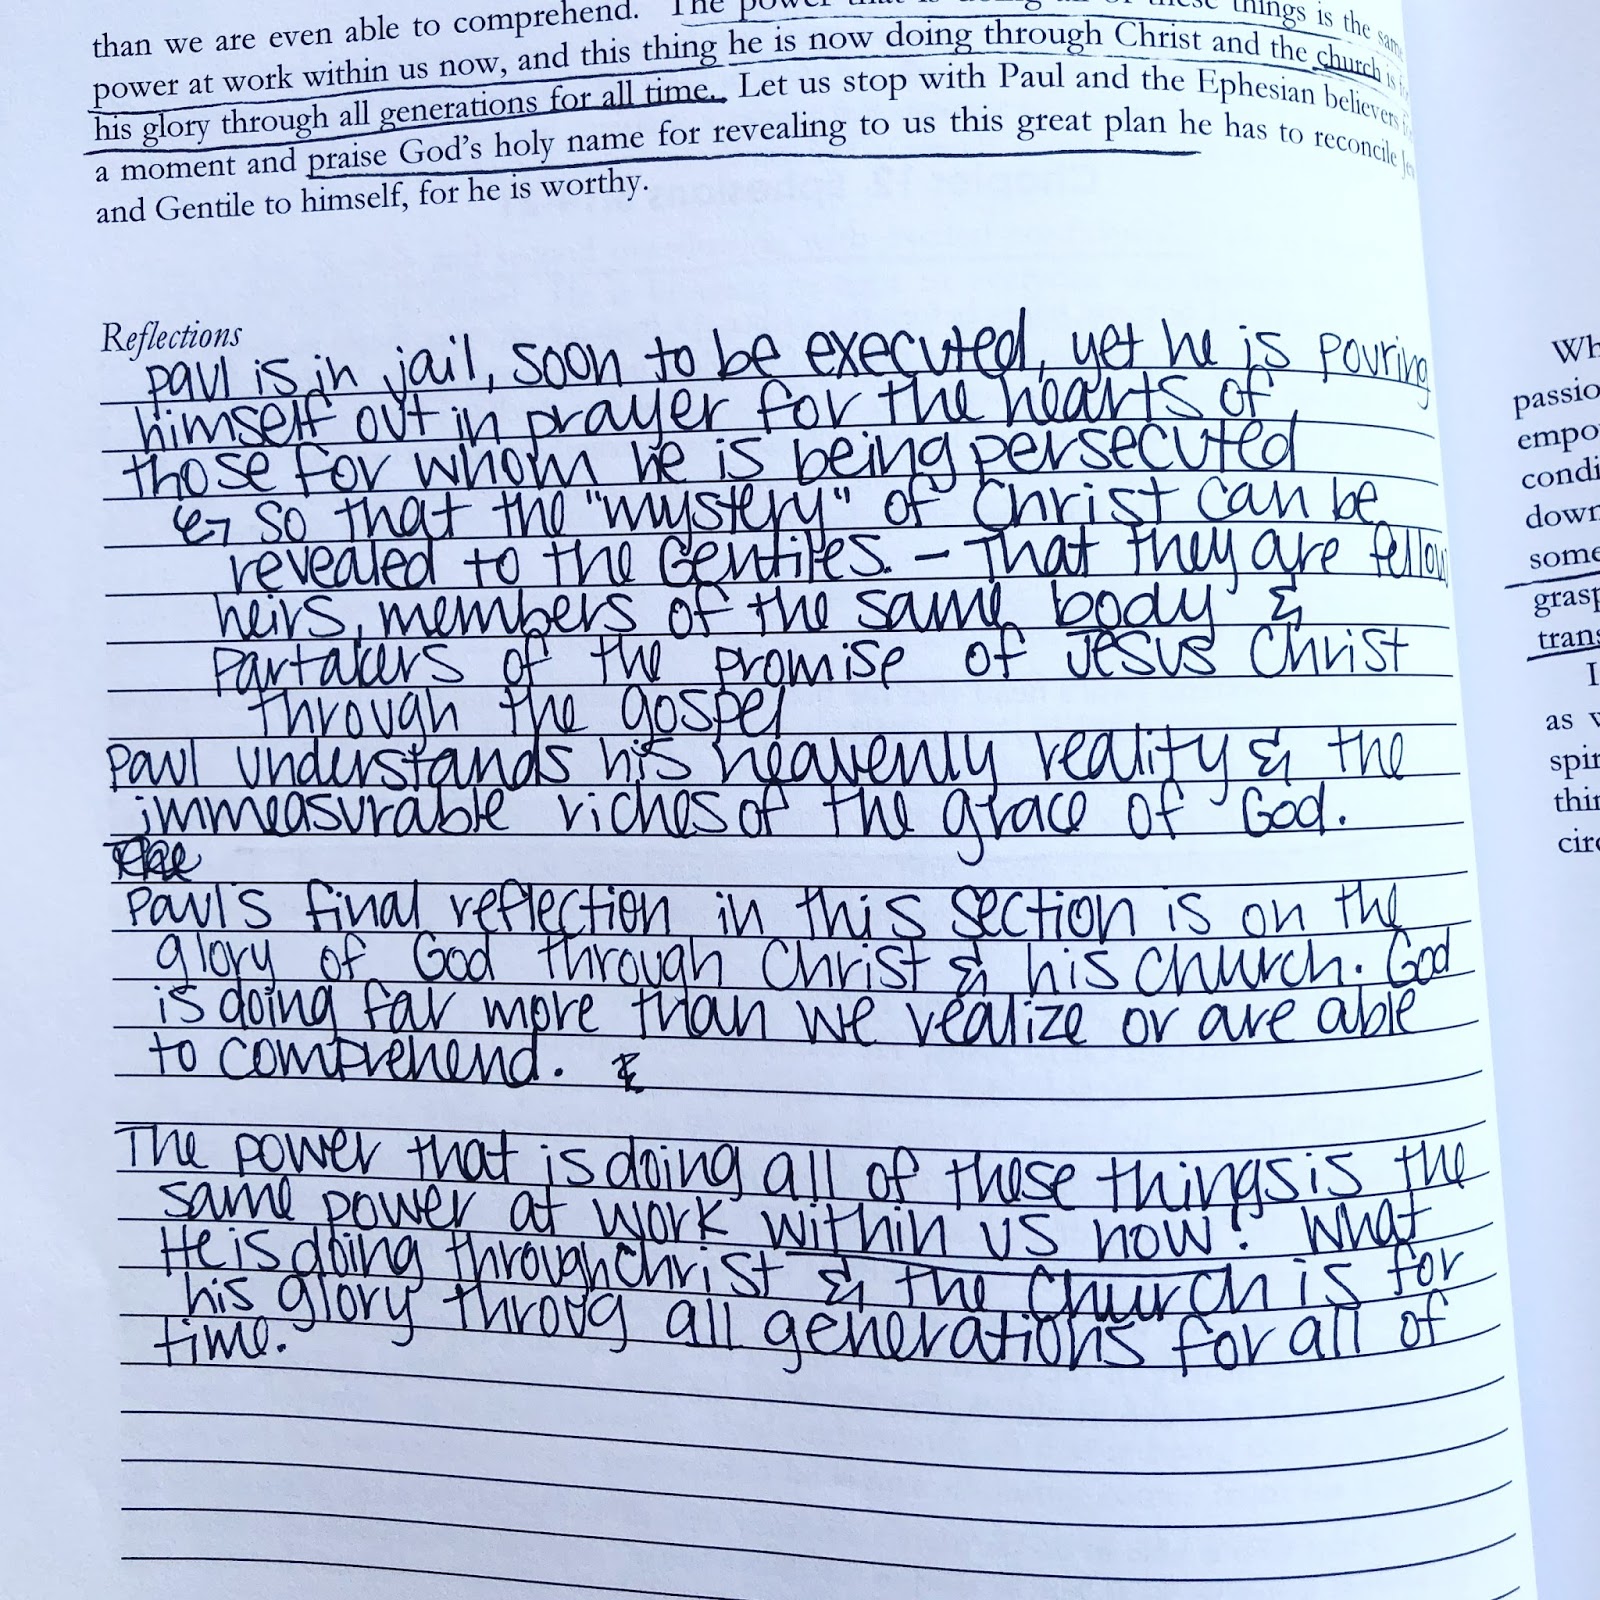 than we are even able to comprehend. The power that is doing all of these things is the same
power at work within us now, and this thing he is now doing through Christ and the church is for
his glory through all generations for all time. Let us stop with Paul and the Ephesian believers
a moment and praise God's holy name for revealing to us this great plan he has to reconcile
and Gentile to himself, for he is worthy.
Reflections
Paul is in jail, soon to be executed, yet he is pouring
himself out in prayer for the hearts of
those for whom he is being persecuted
↳ so that the "mystery" of Christ can be
revealed to the Gentiles. - That they are fellow
heirs, members of the same body &
partakers of the promise of Jesus Christ
through the gospel
Paul understands his heavenly reality & the
immeasurable riches of the grace of God.
Paul's final reflection in this section is on the
glory of God through Christ & his church. God
is doing far more than we realize or are able
to comprehend.
The power that is doing all of these things is the
same power at work within us now! What
He is doing through Christ & the Church is for
his glory throug all generations for all of
time.
Wh
passio
empo
condi
down
some
grasp
trans
I
as w
spir
thin
circ